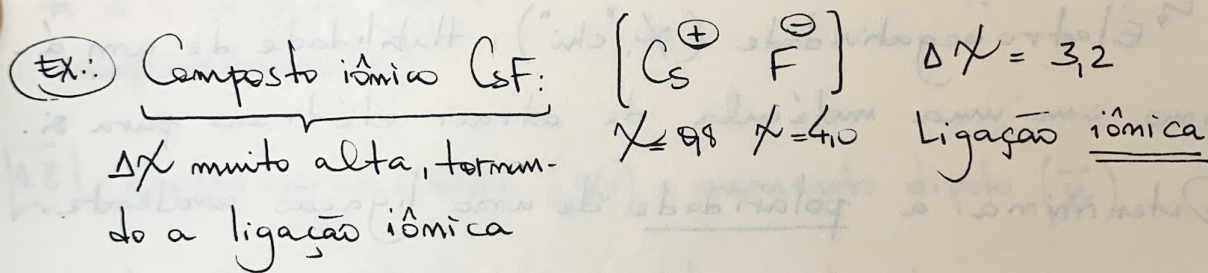 Ex.: Composto iônico CsF: [Cs⊕ F⊖] Δχ = 3,2
χ=0,8 χ=4,0 Ligação iônica
Δχ muito alta, tornan-
do a ligação iônica